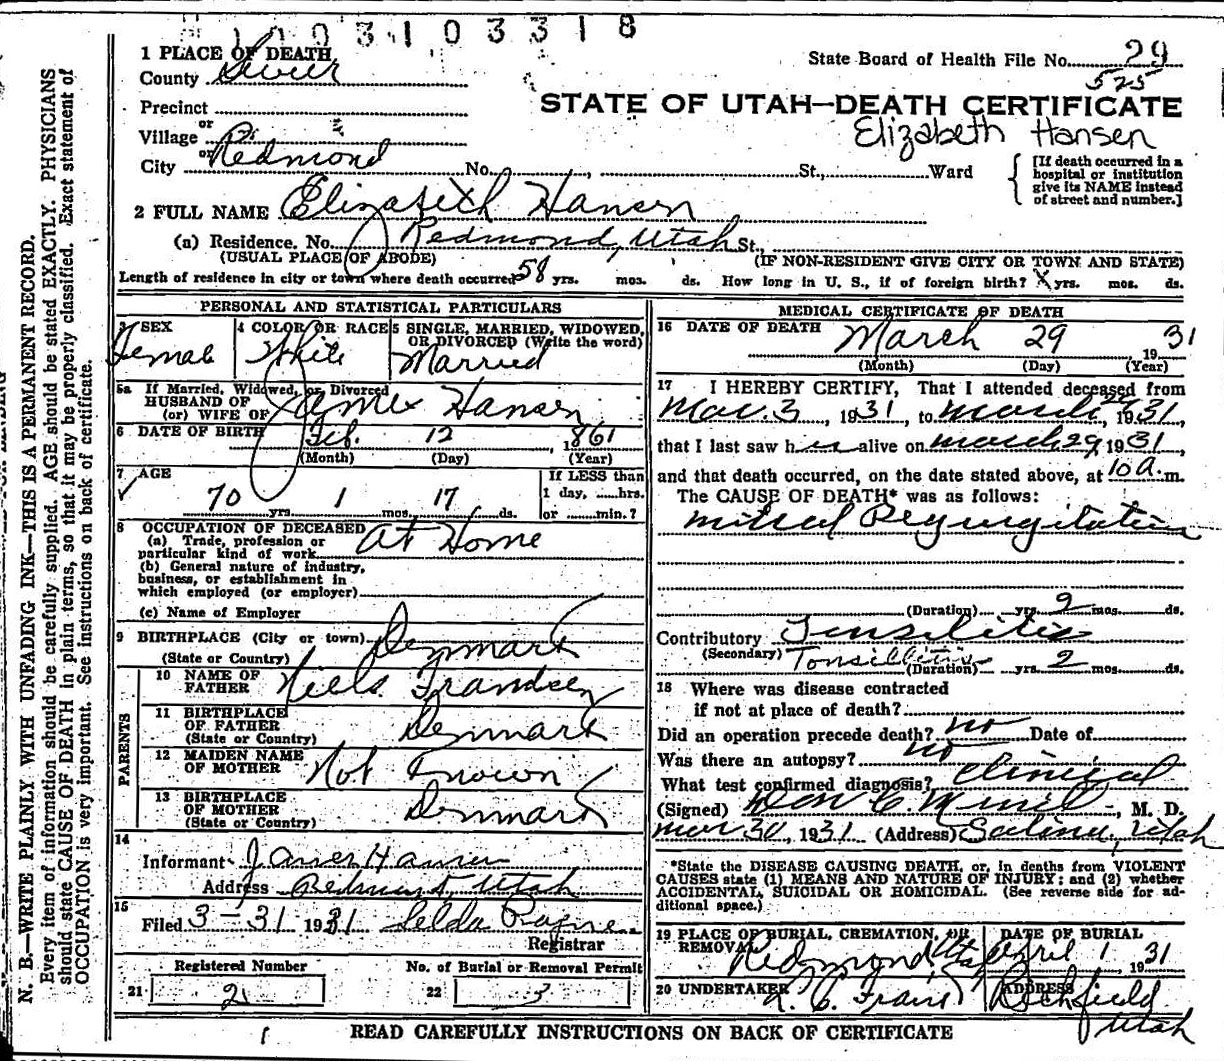 1 1 0 3 1 0 3 3 1 8
1 PLACE OF DEATH
County Sevier
State Board of Health File No. 29
525
Precinct
STATE OF UTAH—DEATH CERTIFICATE
or
Village
Elizabeth Hansen
or
City Redmond No. , St., Ward
[If death occurred in a
hospital or institution
give its NAME instead
of street and number.]
2 FULL NAME Elizabeth Hansen
(a) Residence. No. Redmond, Utah St.,
(USUAL PLACE OF ABODE) (IF NON-RESIDENT GIVE CITY OR TOWN AND STATE)
Length of residence in city or town where death occurred 58 yrs. mos. ds. How long in U. S., if of foreign birth? X yrs. mos. ds.
PERSONAL AND STATISTICAL PARTICULARS
3 SEX
Female
4 COLOR OR RACE
White
5 SINGLE, MARRIED, WIDOWED,
OR DIVORCED (Write the word)
Married
5a If Married, Widowed, or Divorced
HUSBAND OF
(or) WIFE OF James Hansen
6 DATE OF BIRTH Feb. 12 1861
(Month) (Day) (Year)
7 AGE
70 yrs. 1 mos. 17 ds.
If LESS than
1 day, hrs.
or min.?
8 OCCUPATION OF DECEASED
(a) Trade, profession or
particular kind of work At Home
(b) General nature of industry,
business, or establishment in
which employed (or employer)
(c) Name of Employer
9 BIRTHPLACE (City or town) Denmark
(State or Country)
PARENTS
10 NAME OF
FATHER Niels Frandsen
11 BIRTHPLACE
OF FATHER Denmark
(State or Country)
12 MAIDEN NAME
OF MOTHER Not Known
13 BIRTHPLACE
OF MOTHER Denmark
(State or Country)
14
Informant James Hansen
Address Redmond, Utah
15
Filed 3-31 1931 Selda
Registrar
Registered Number
21 2
No. of Burial or Removal Permit
22 3
MEDICAL CERTIFICATE OF DEATH
16 DATE OF DEATH March 29 1931
(Month) (Day) (Year)
17 I HEREBY CERTIFY, That I attended deceased from
Mar. 3, 1931, to March 29, 1931,
that I last saw her alive on March 29, 1931,
and that death occurred, on the date stated above, at 10 a. m.
The CAUSE OF DEATH* was as follows:
Mitral Regurgitation
(Duration) yrs. mos. ds.
Contributory Tonsilitis
(Secondary) Tonsillitis (Duration) yrs. 2 mos. ds.
18 Where was disease contracted
if not at place of death?
Did an operation precede death? no Date of
Was there an autopsy? no
What test confirmed diagnosis? Clinical
(Signed) , M. D.
Mar 30, 1931 (Address) Salina, Utah
*State the DISEASE CAUSING DEATH, or, in deaths from VIOLENT
CAUSES state (1) MEANS AND NATURE OF INJURY; and (2) whether
ACCIDENTAL, SUICIDAL OR HOMICIDAL. (See reverse side for ad-
ditional space.)
19 PLACE OF BURIAL, CREMATION, OR
REMOVAL Redmond Utah
DATE OF BURIAL
April 1 1931
20 UNDERTAKER
ADDRESS
Richfield
Utah
READ CAREFULLY INSTRUCTIONS ON BACK OF CERTIFICATE
N. B.—WRITE PLAINLY WITH UNFADING INK—THIS IS A PERMANENT RECORD.
Every item of information should be carefully supplied. AGE should be stated EXACTLY. PHYSICIANS
should state CAUSE OF DEATH in plain terms, so that it may be properly classified. Exact statement of
OCCUPATION is very important. See instructions on back of certificate.